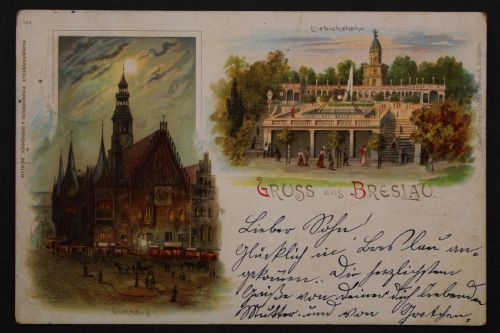 Liebichshöhe
Gruss aus Breslau.
Rathhaus
Lieber Sohn!
Glücklich in Breslau an-
gekommen. Die herzlichsten
Grüße von Deiner Dich liebenden
Mutter und von Gretchen.